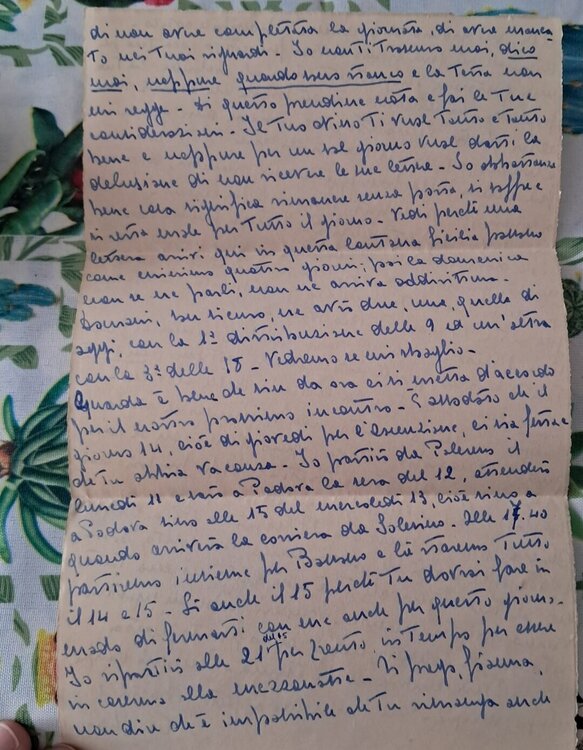 di non aver completata la giornata, di aver manca-
to nei tuoi riguardi. - Io non ti trascuro mai, dico
mai, neppure quando sono stanco e la testa non
mi regge - Di questo prendine nota e fai le tue
considerazioni. - Il tuo Nino Ti vuol tanto e tanto
bene e neppure per un sol giorno vuol darti la
delusione di non ricevere le sue lettere. - So abbastanza
bene cosa significa rimanere senza posta, si soffre e
si sta male per tutto il giorno. - Vedi perché una
lettera arrivi qui in questa lontana Sicilia passano
come minimo quattro giorni; poi la domenica
non se ne parli, non ne arriva addirittura.
Domani, son sicuro, ne avrò due, una, quella di
oggi, con la 1ª distribuzione delle 9 ed un'altra
con la 3ª delle 18 - Vedremo se mi sbaglio. -
Guarda è bene che sin da ora ci si metta d'accordo
per il nostro prossimo incontro. - È assodato che il
giorno 14, cioè di giovedì per l'Ascensione, ci sia festa e
che tu abbia vacanza. - Io partirò da Palermo il
lunedì 11 e sarò a Padova la sera del 12, attenderò
a Padova sino alle 15 del mercoledì 13, cioè sino a
quando arriverà la corriera da - Alle 17.40
partiremo insieme per e lì staremo tutto
il 14 e 15 - Sì anche il 15 perché tu dovrai fare in
modo di fermarti con me anche per questo giorno.
Io ripartirò alle 21 del 15 per Trento, in tempo per essere
in caserma alla mezzanotte. - Ti prego, gioia,
non dire che è impossibile che tu rimanga anche